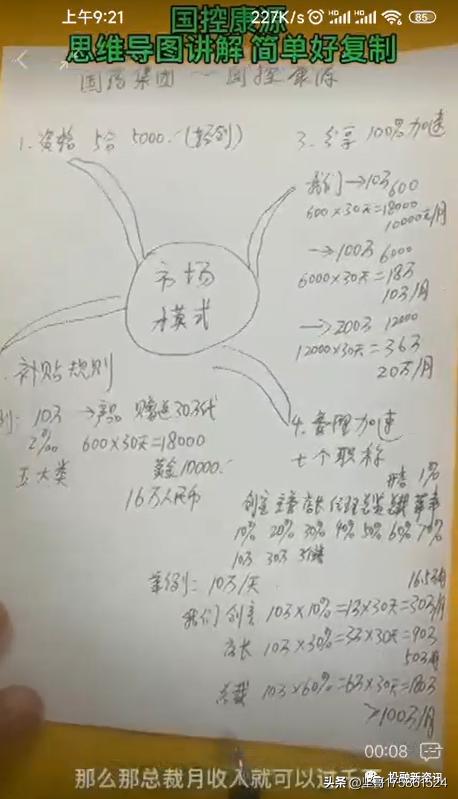 上午9:21
227K/s
85
国控康源
思维导图讲解 简单好复制
国药集团 — 国控康源
1. 资格 5台 5000.
3. 分享 100%加速
我们→10万 600
600×30天=18000
10000元/月
→100万 6000
6000×30天=18万
10万/月
→200万 12000
12000×30天=36万
20万/月
市场
模式
补贴规则
例: 10万 →产品 赠送30万代
2‰ 600×30天=18000
五大类 黄金10000.
16万人民币
4. 管理加速
七个职称
1%
创客 主管 店长 经理 总监 总裁 董事
10% 20% 30% 40% 50% 60% 70%
10万 30万
案例: 10万/天
我们 创客 10万×10%=1万×30天=30万/月
店长 10万×30%=3万×30天=90万
50万/月
总裁 10万×60%=6万×30天=180万
>100万/月
00:08
投融新资讯
那么那总裁月收入就可以过